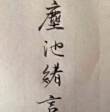 塵池緒言